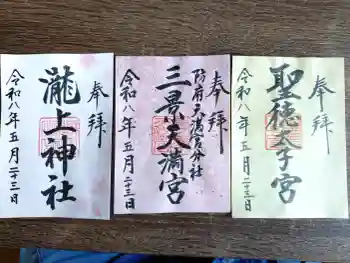 奉拝
瀧上神社
令和八年五月二十三日
奉拝
防府天満宮分社
三景天満宮
令和八年五月二十三日
奉拝
聖徳太子宮
令和八年五月二十三日